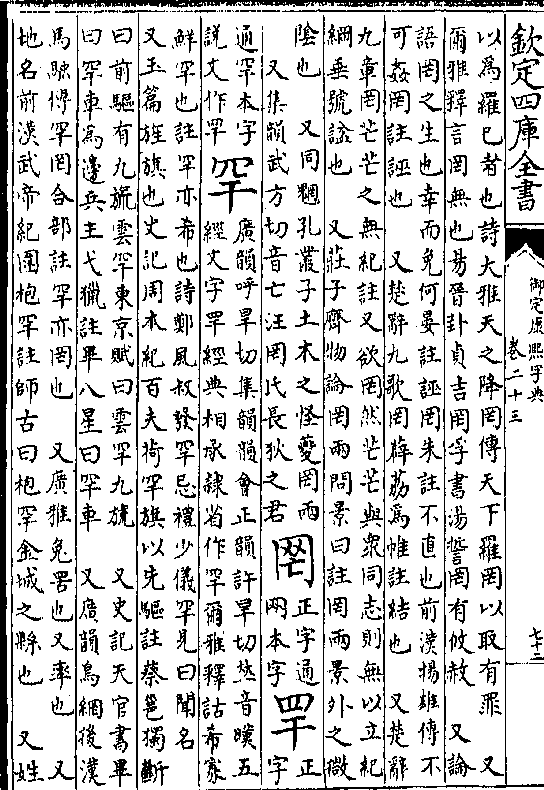 欽定四庫全書
御定康熙字典
卷二十三
七十二
以為羅巳者也詩大雅天之降罔傳天下羅罔以取有罪　又
爾雅釋言罔無也易晉卦貞吉罔孚書湯誓罔有攸赦　又論
語罔之生也幸而免何晏註誣罔朱註不直也前漢揚雄傳不
可姦罔註誣也　又楚辭九歌罔薜荔爲帷註結也　又楚辭
九章罔芒芒之無紀註又欲罔然芒芒與衆同志則無以立紀
綱垂號諡也　又莊子齊物論罔兩問景曰註罔兩景外之微
陰也　又同魍孔叢子土木之怪夔罔兩　罔正字通正
又集韻武方切音亡汪罔氏長狄之君　网本字　罕字
通罕本字　罕廣韻呼旱切集韻韻會正韻許旱切𠀤音暵五
說文作罕　經文字罕經典相承隷省作罕爾雅釋詁希寡
鮮罕也註罕亦希也詩鄭風叔發罕忌禮少儀罕見曰聞名
又玉篇旌旗也史記周本紀百夫荷罕旗以先驅註蔡邕獨斷
曰前驅有九旒雲罕東京賦曰雲罕九旒　又史記天官書畢
曰罕車爲邊兵主弋獵註畢八星曰罕車　又廣韻鳥網後漢
馬融傳罕罔合部註罕亦罔也　又廣雅兔罟也又率也　又
地名前漢武帝紀圍枹罕註師古曰枹罕金城之縣也　又姓